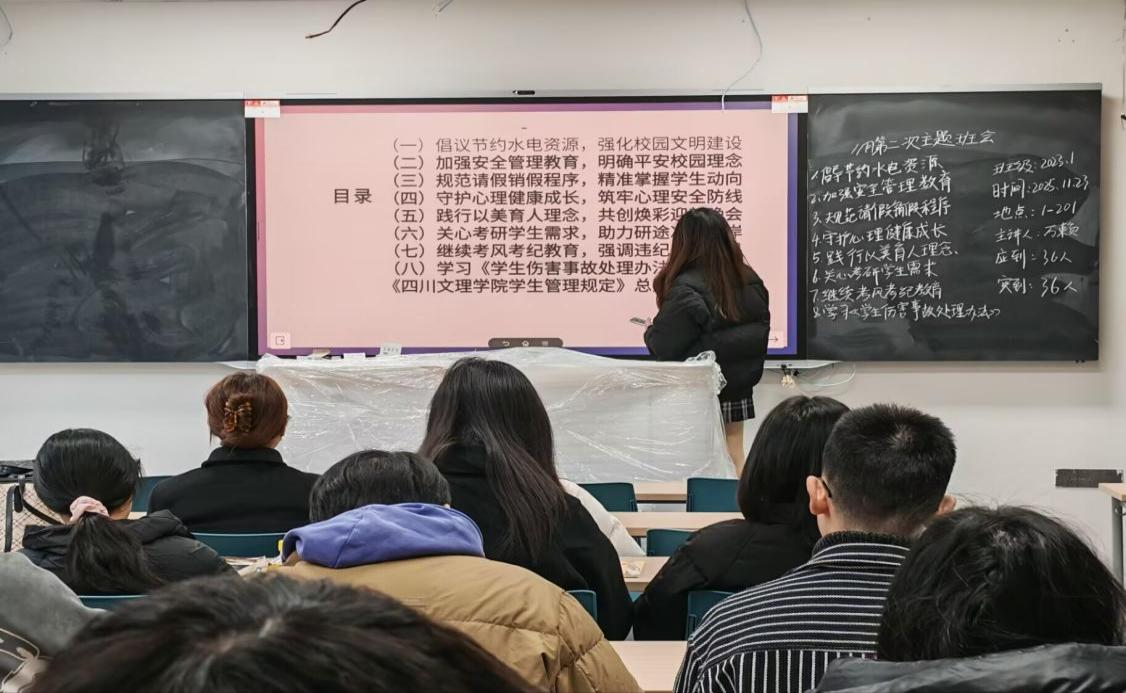 目录
(一) 倡议节约水电资源，强化校园文明建设
(二) 加强安全管理教育，明确平安校园理念
(三) 规范请假销假程序，精准掌握学生动向
(四) 守护心理健康成长，筑牢心理安全防线
(五) 践行以美育人理念，共创焕彩迎 会
(六) 关心考研学生需求，助力研途
(七) 继续考风考纪教育，强调违纪
(八) 学习《学生伤害事故处理办
《四川文理学院学生管理规定》总
11月第二次主题班会
1.倡导节约水电资源
2.加强安全管理教育
3.规范请假销假程序
4.守护心理健康成长
5.践行以美育人理念.
6.关心考研学生需求
7.继续考风考纪教育
8.学习《学生伤害事故处理办法》
班级:2023.1
时间:2025.11.23
地点:1-201
主讲人:
应到:36人
实到:36人